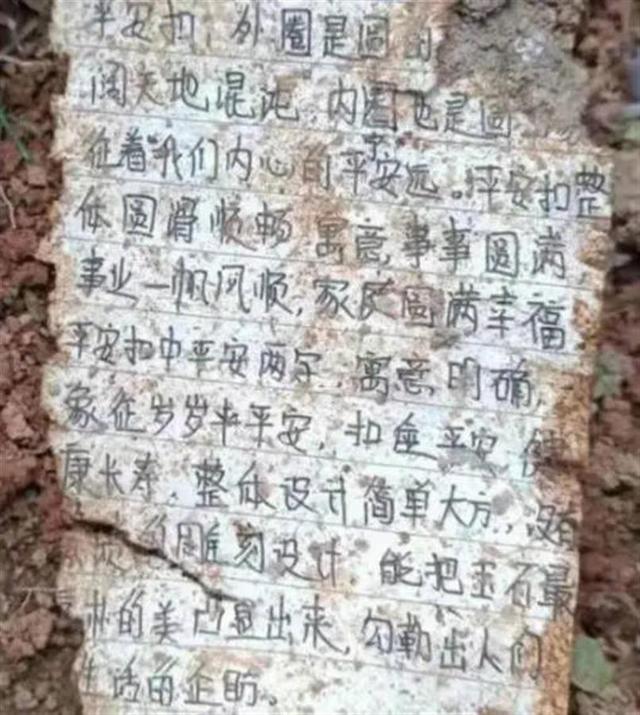 平安扣，外圈是圆
阔天地混沌，内圈也是圆
征着我们内心的平安远。平安扣整
体圆滑顺畅 寓意事事圆满
事业一帆风顺，家民圆满幸福
平安扣中平安两字，寓意明确，
象征岁岁平平安，扣 平安
康长寿，整体设计简单大方，没有
雕刻设计 能把玉石最
的美凸显出来，勾勒出人们
生活的企盼。